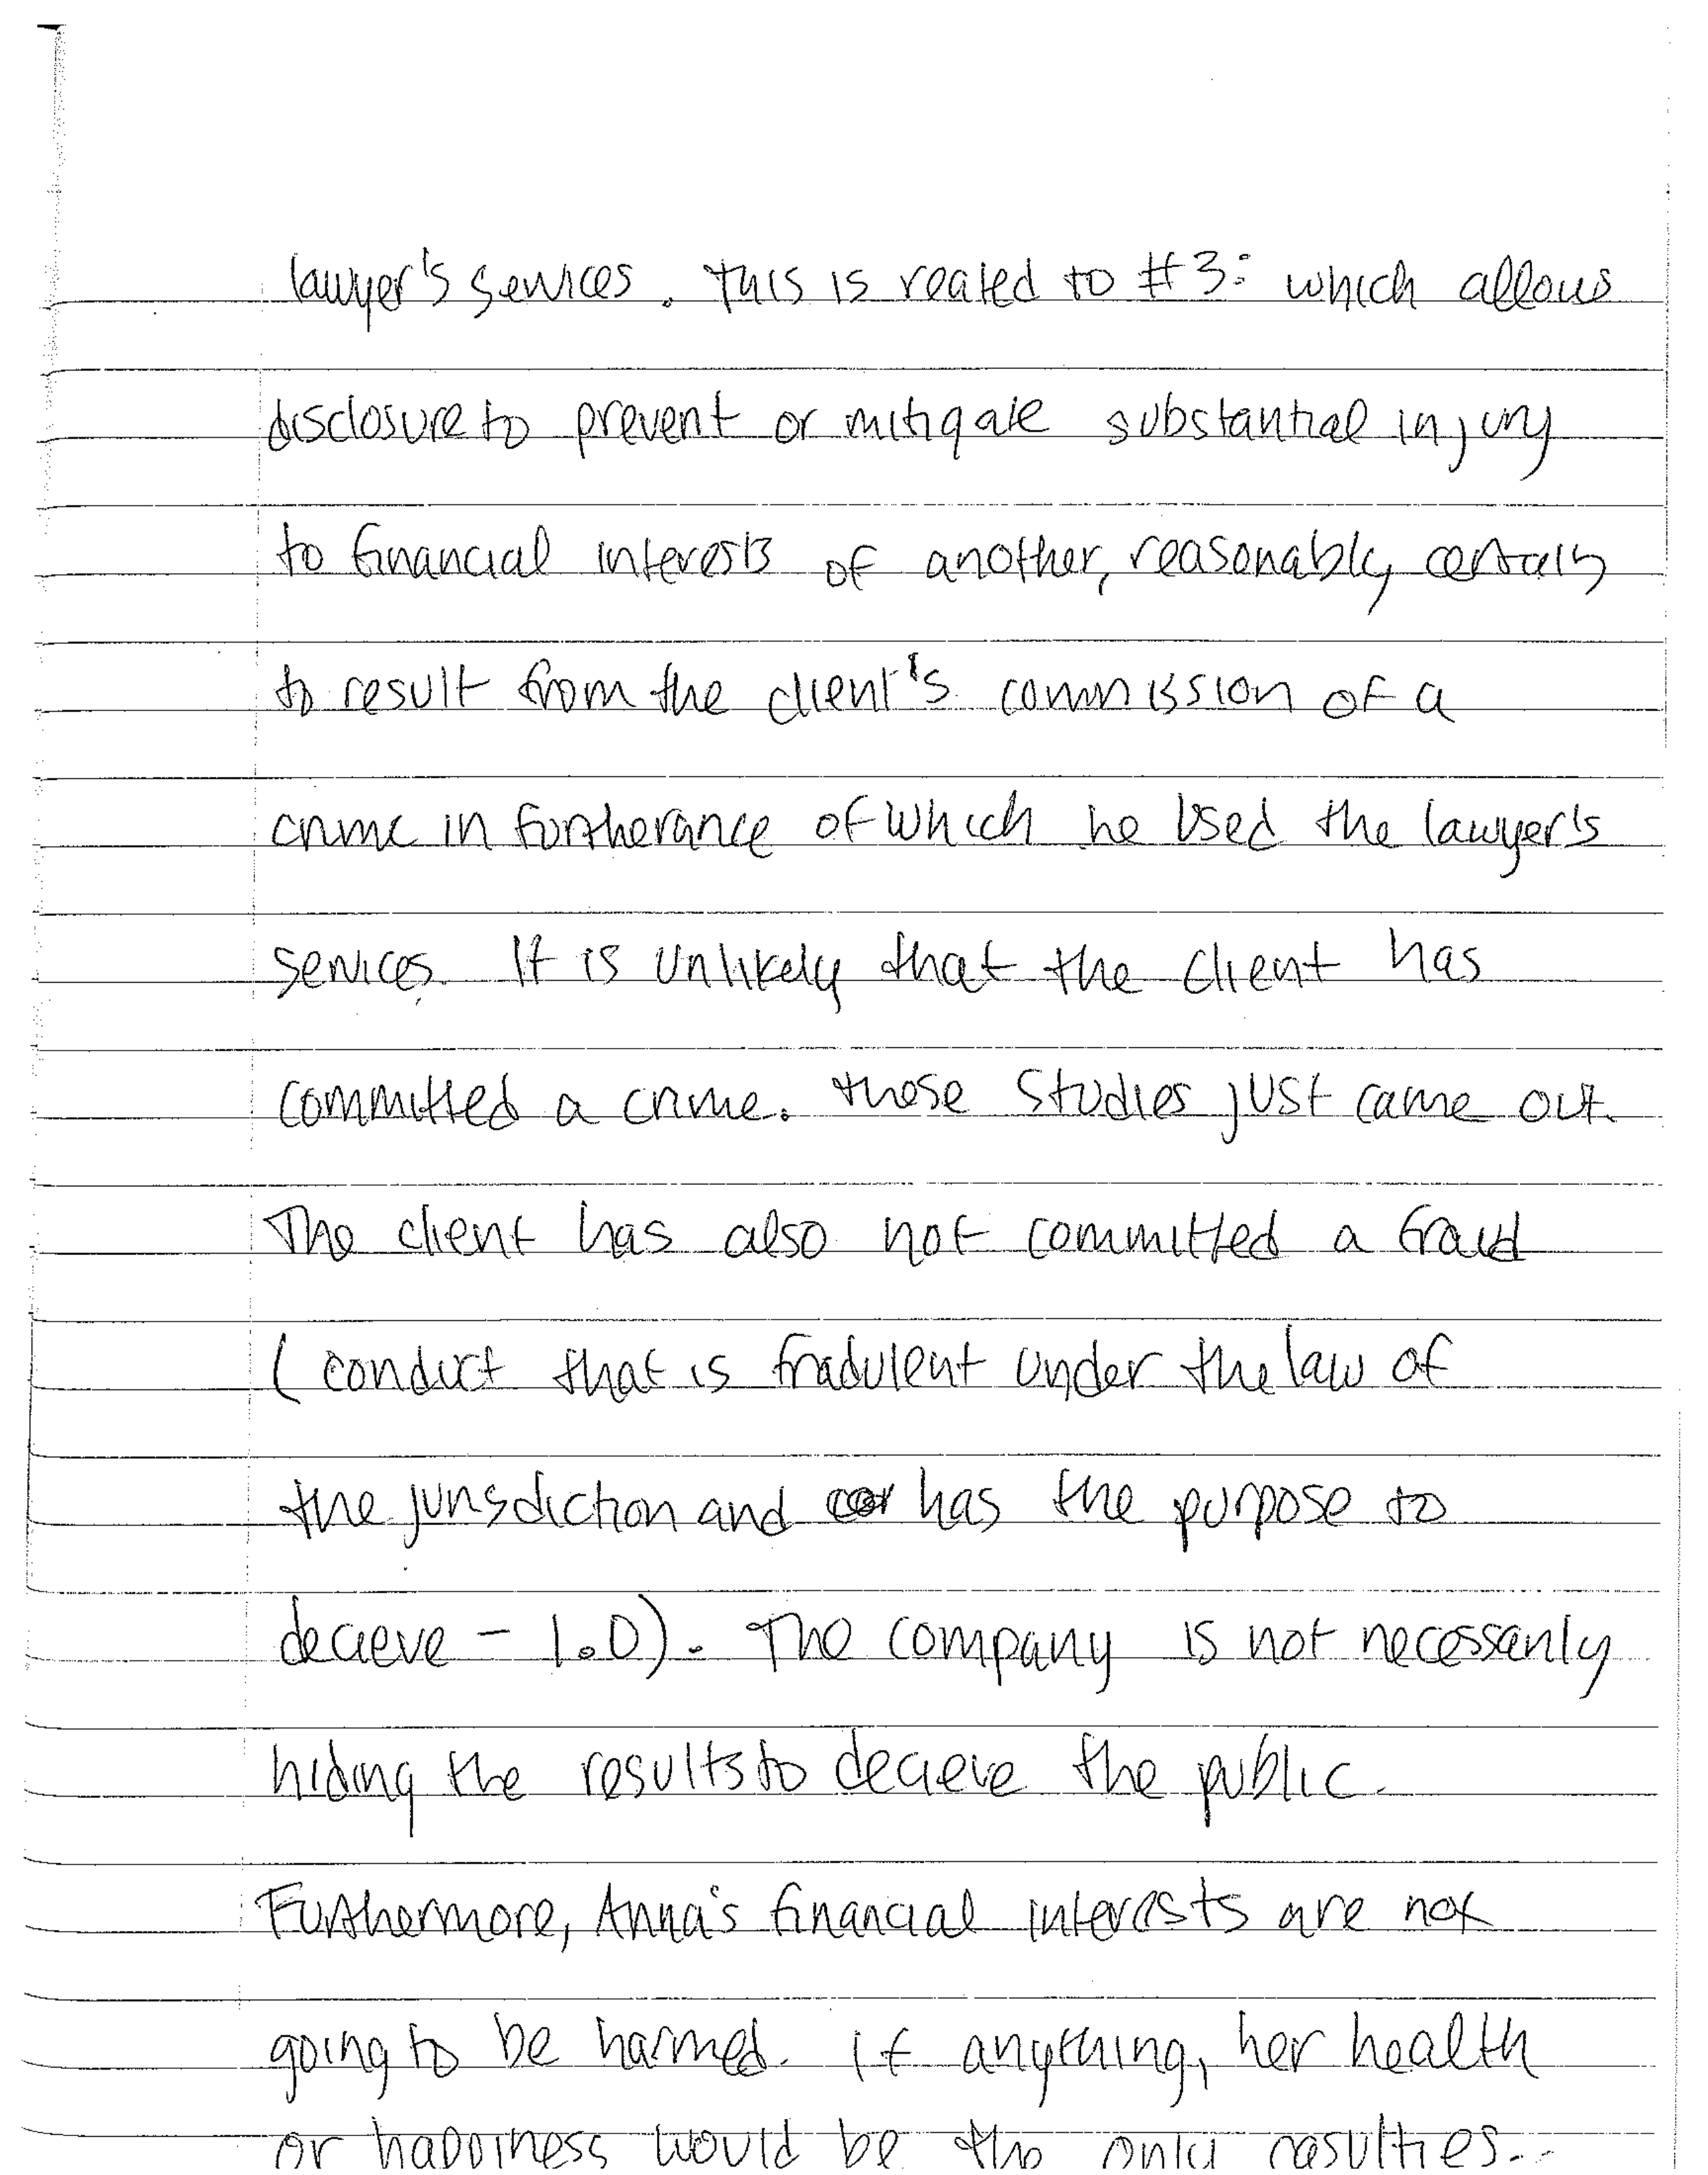 lawyer's services. This is realed to #3: which allows
disclosure to prevent or mitigate substantial injury
to financial interests of another, reasonably certain
to result from the client's commission of a
crime in furtherance of which he used the lawyer's
services. It is unlikely that the client has
committed a crime. those studies just came out.
The client has also not committed a fraud
(conduct that is fradulent under the law of
the jurisdiction and has the purpose to
decieve - 1.0). The company is not necessarily
hiding the results to decieve the public.
Furthermore, Anna's financial interests are not
going to be harmed. If anything, her health
or happiness would be the only casulties...